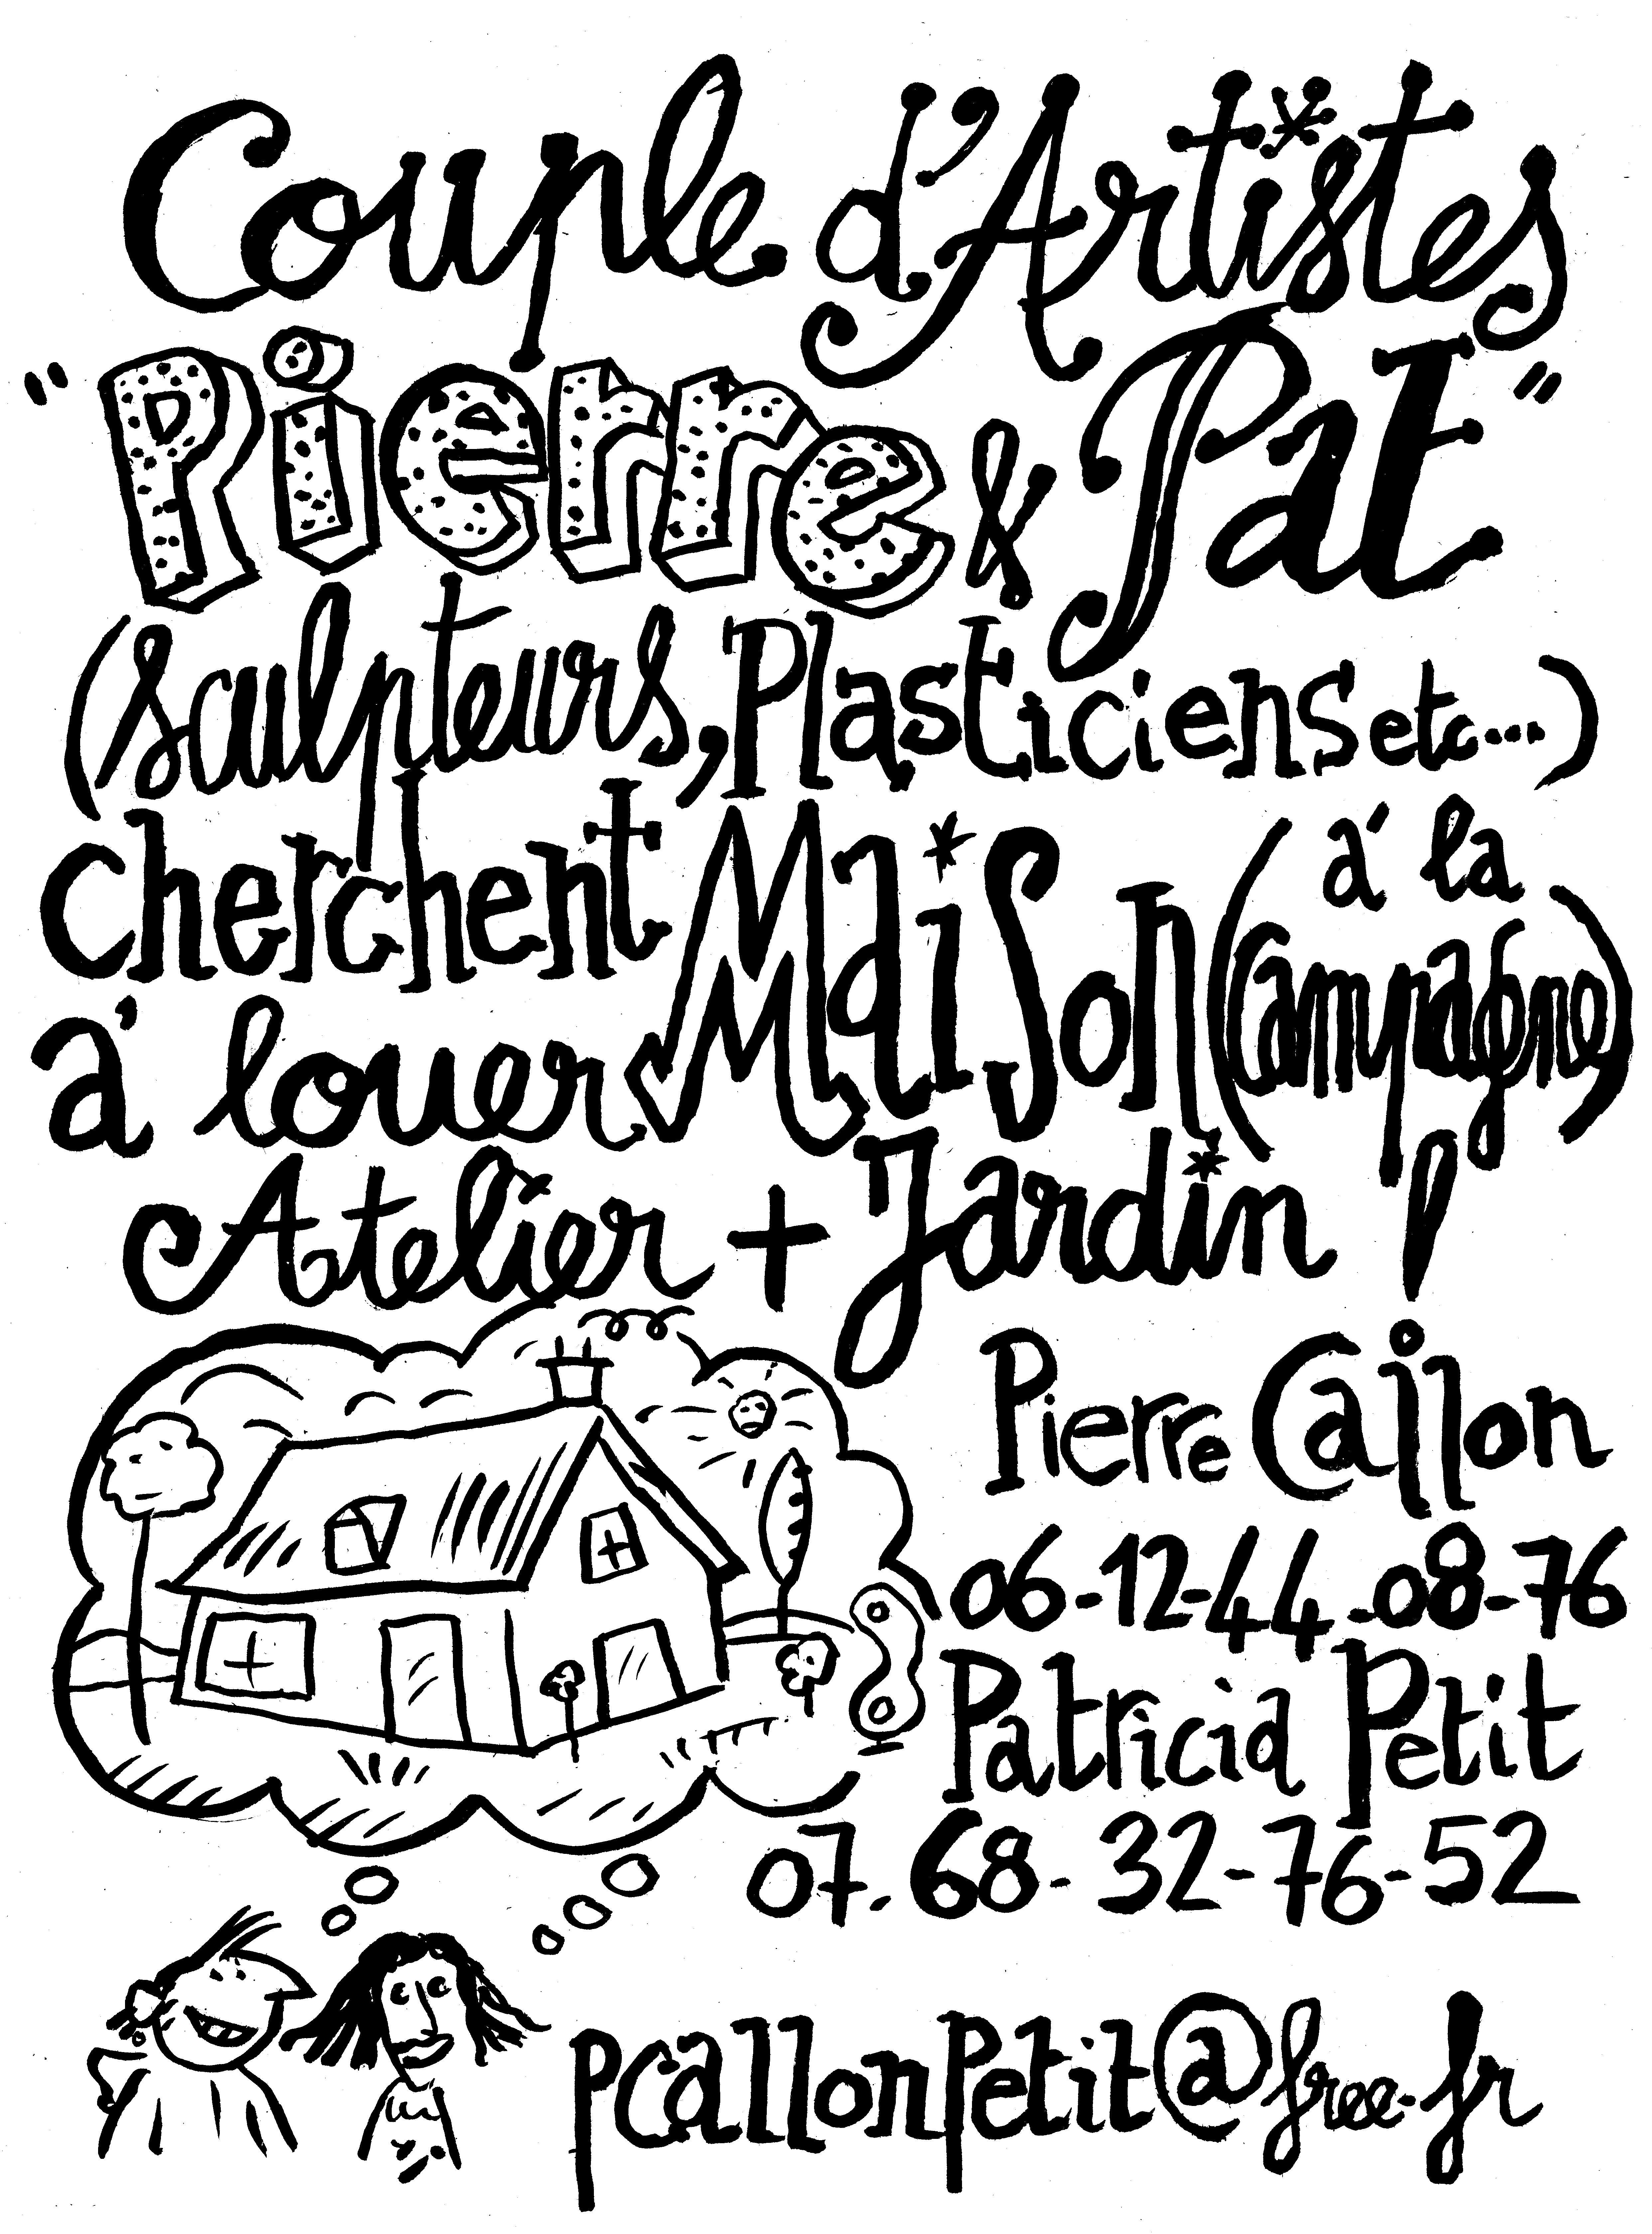 Couple d'Artistes
"Pierre & Pat"
(Sculpteurs, Plasticiens etc...)
cherchent Maison (à la
à louer Campagne)
Atelier + Jardin !
Pierre Callon
06-12-44-08-76
Patricia Petit
07.68-32-76-52
pcallonpetit@free.fr